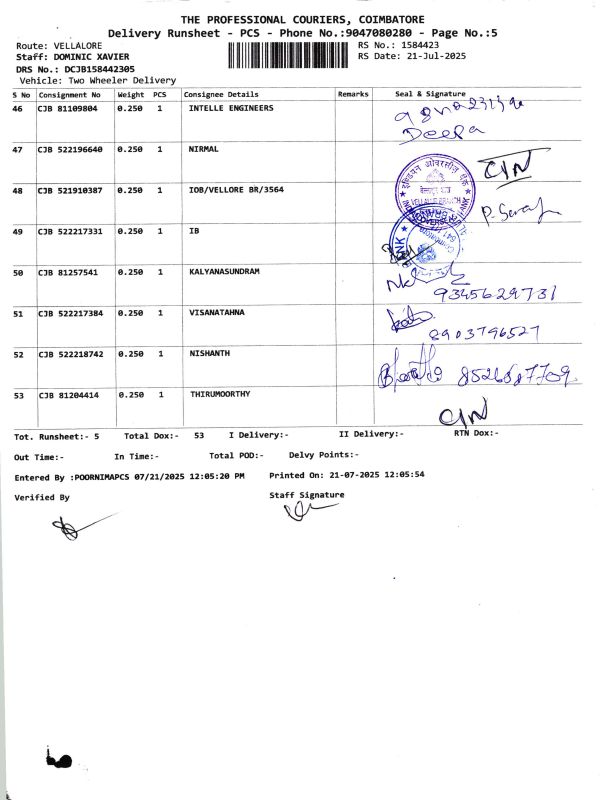 THE PROFESSIONAL COURIERS, COIMBATORE
Delivery Runsheet - PCS - Phone No.:9047080280 - Page No.:5
Route: VELLALORE RS No.: 1584423
Staff: DOMINIC XAVIER RS Date: 21-Jul-2025
DRS No.: DCJB158442305
Vehicle: Two Wheeler Delivery
S No Consignment No Weight PCS Consignee Details Remarks Seal & Signature
46 CJB 81109804 0.250 1 INTELLE ENGINEERS
Deepa
47 CJB 522196640 0.250 1 NIRMAL
C/N
48 CJB 521910387 0.250 1 IOB/VELLORE BR/3564
इण्डियन ओवरसीज़ बैंक
VELLALORE BRANCH
49 CJB 522217331 0.250 1 IB
50 CJB 81257541 0.250 1 KALYANASUNDRAM
9345629731
51 CJB 522217384 0.250 1 VISANATAHNA
8903796527
52 CJB 522218742 0.250 1 NISHANTH
53 CJB 81204414 0.250 1 THIRUMOORTHY
C/N
Tot. Runsheet:- 5 Total Dox:- 53 I Delivery:- II Delivery:- RTN Dox:-
Out Time:- In Time:- Total POD:- Delvy Points:-
Entered By :POORNIMAPCS 07/21/2025 12:05:20 PM Printed On: 21-07-2025 12:05:54
Verified By Staff Signature